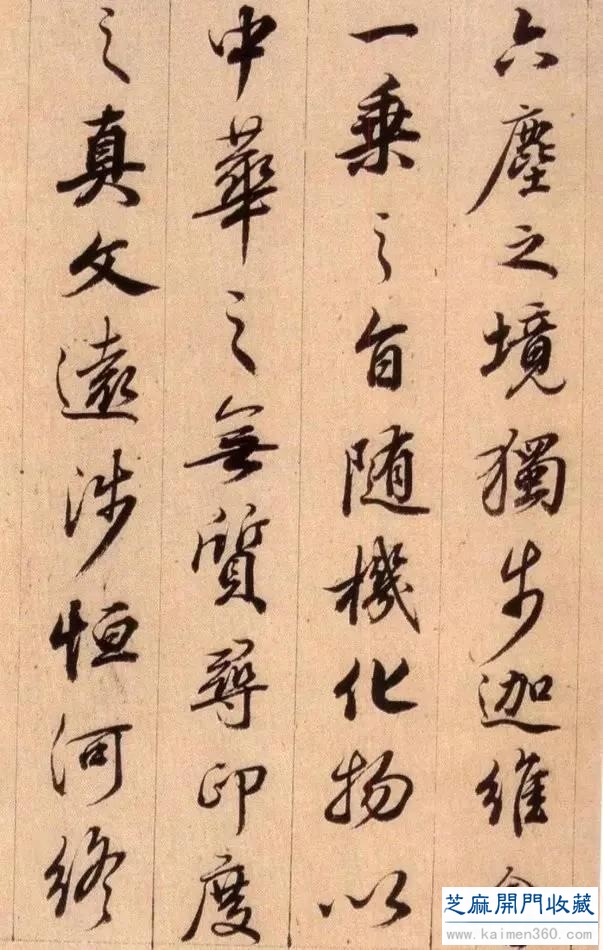 六塵之境獨步迦維
一乗之旨随機化物以
中華之無質尋印度
之真文遠涉恒河終
芝麻開門收藏
www.kaimen360.com